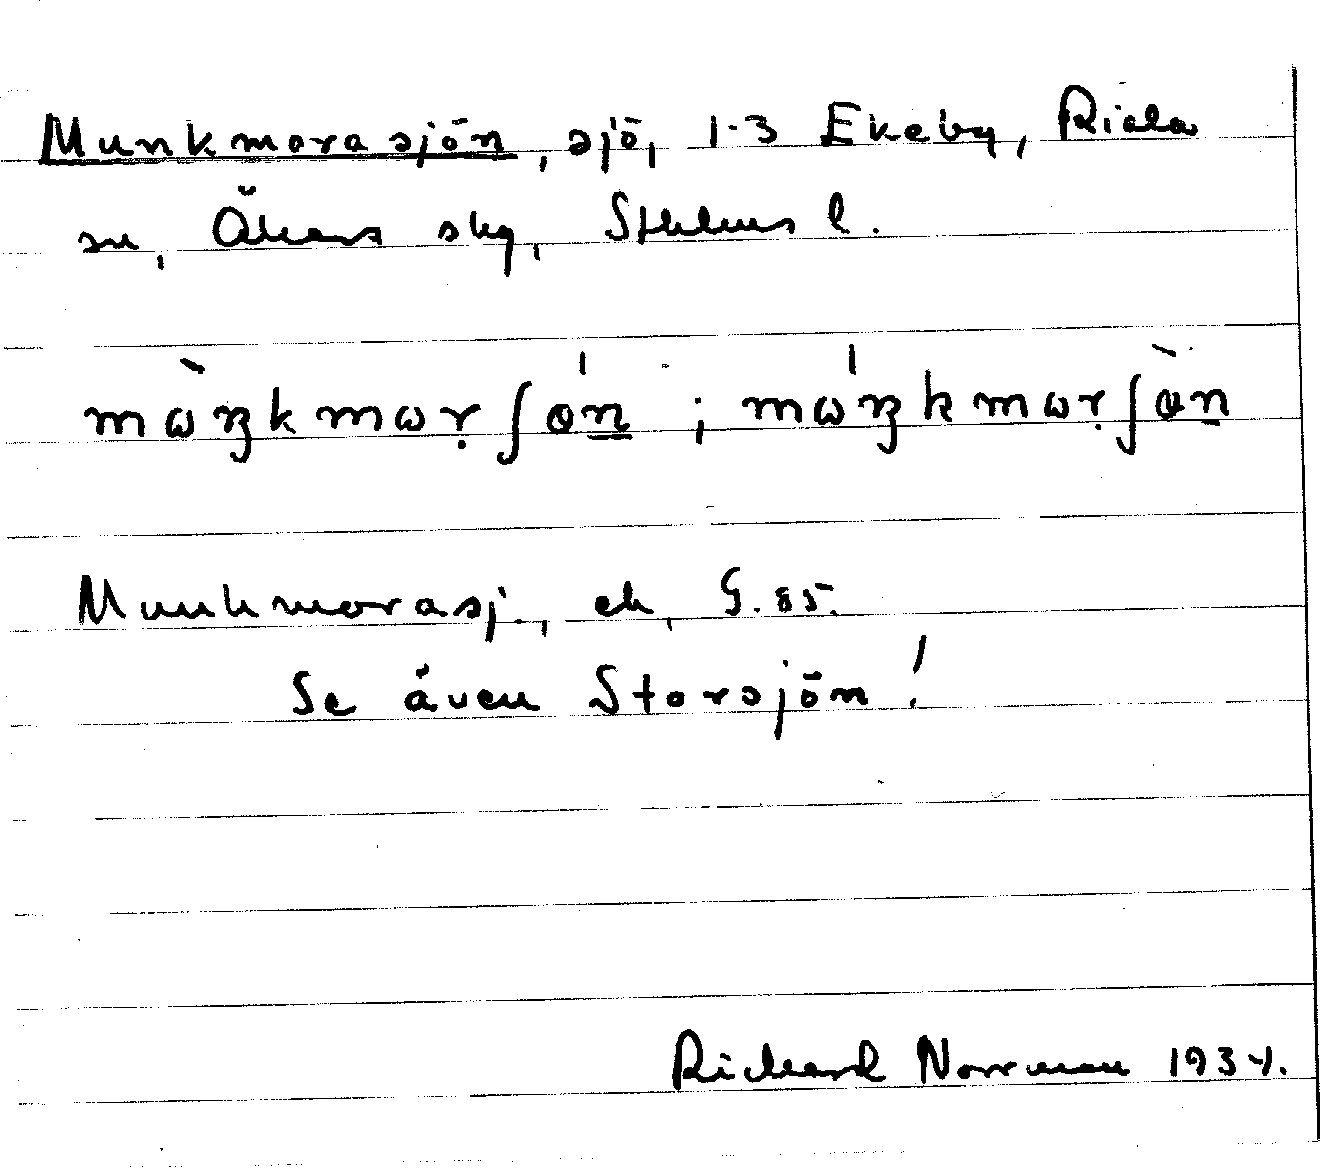 Munkmorasjön, sjö, 1-3 Ekeby, Riala
sn, Åkers skg, Sthlms l.
mωŋkmωrʃөn ; mωŋkmωrʃөn
Munkmorasj., ek, G.85.
Se även Storsjön!
Richard Norrman 1934.